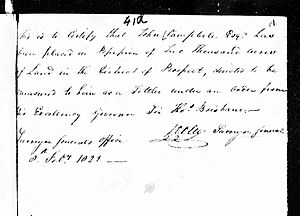 412
This is to Certify that John Campbell Esqr. has
been placed in Possession of Two Thousand acres
of Land in the District of Prospect, directed to be
measured to him as a Settler under an order from
His Excellency Governor Sir Thos. Brisbane
Surveyor General
Surveyor Generals Office
8th Feby. 1822